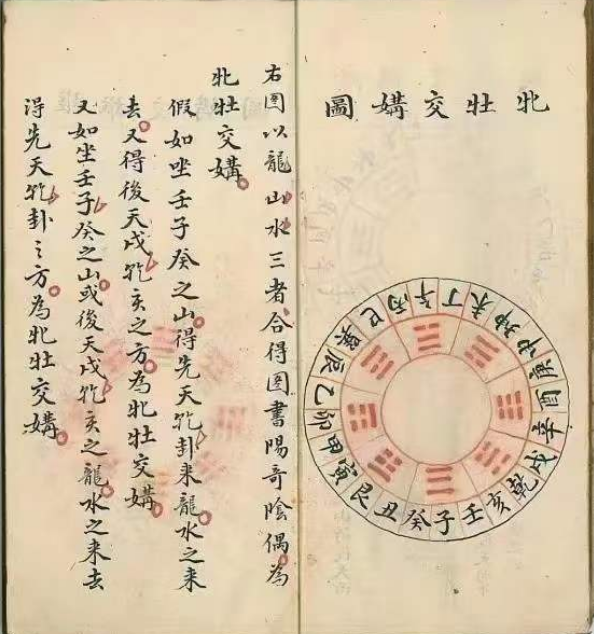 牝牡交媾圖
巳丙午丁未坤申庚酉辛戌乾亥壬子癸丑艮寅甲卯乙辰巽
右图以龍山水三者合得图書陽奇陰偶為
牝牡交媾
假如坐壬子癸之山得先天乹卦来龍水之来
去又得後天戌乹亥之方為牝牡交媾
又如坐壬子癸之山或後天戌乹亥之龍水之来去
得先天乹卦之方為牝牡交媾